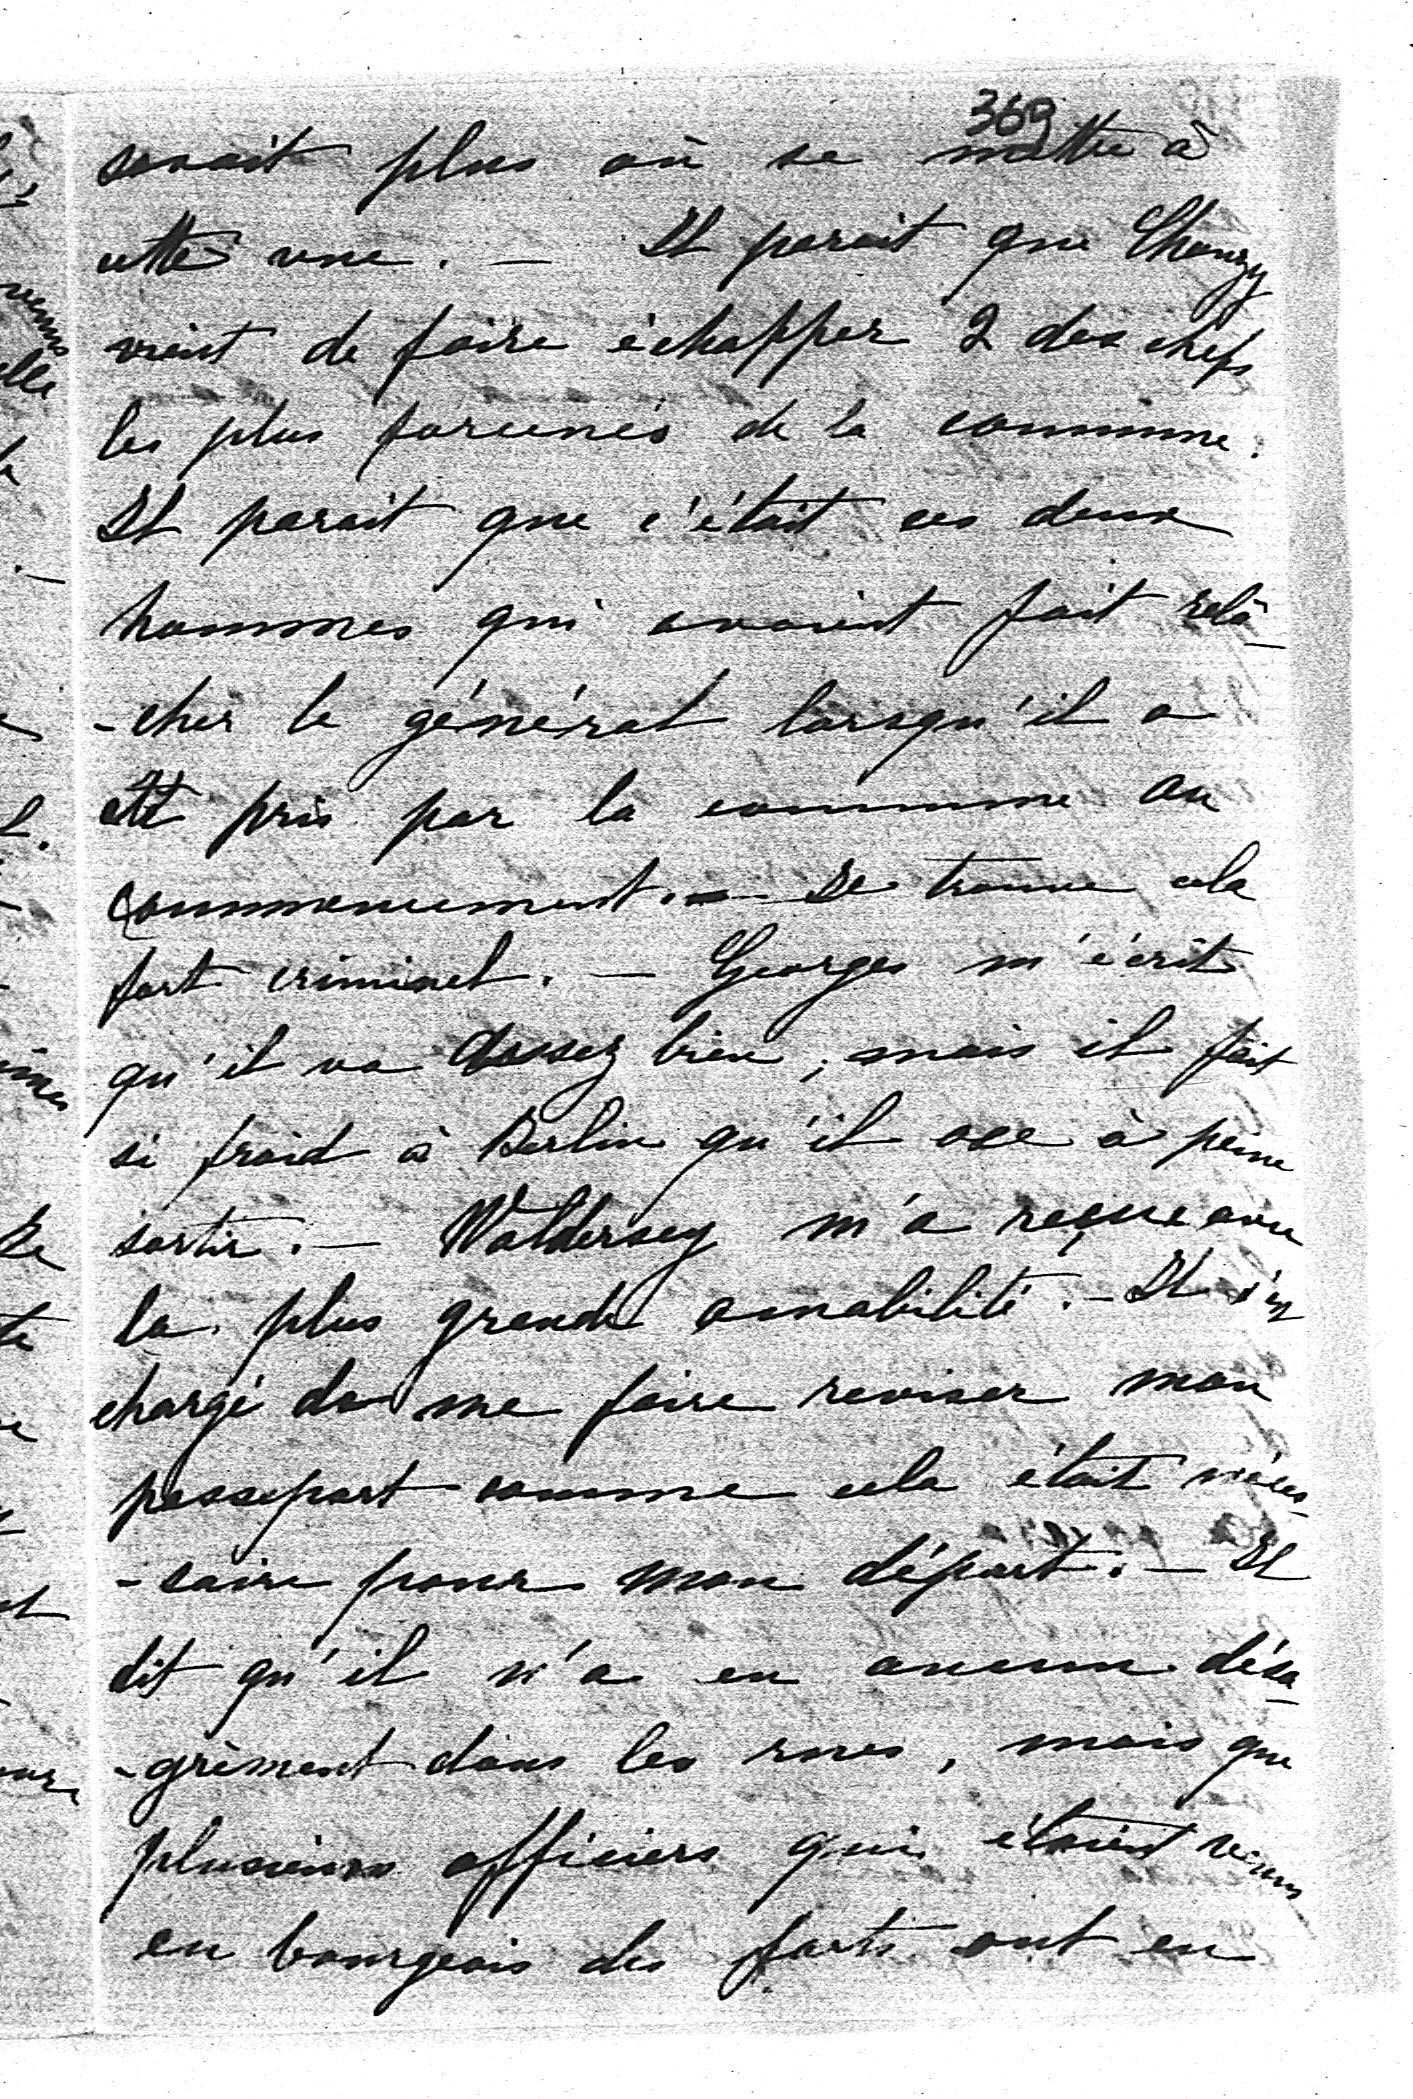 369
savait plus où se mettre à
cette vue. — Il parait que Chanzy
vient de faire échapper 2 des chefs
les plus forcenés de la commune.
Il parait que c'était ces deux
hommes qui avaient fait relâ-
-cher le général lorsqu'il a
été pris par la commune au
commencement. — Je trouve cela
fort criminel. — Georges m'écrit
qu'il va assez bien, mais il fait
si froid à Berlin qu'il ose à peine
sortir. — Waldersey m'a reçue avec
la plus grande amabilité. — Il s'est
chargé de me faire reviser mon
passeport comme cela était néces-
-saire pour mon départ. — Il
dit qu'il n'a eu aucun désa-
-grèment dans les rues, mais que
plusieurs officiers qui étaient venus
en bourgeois des forts ont eu